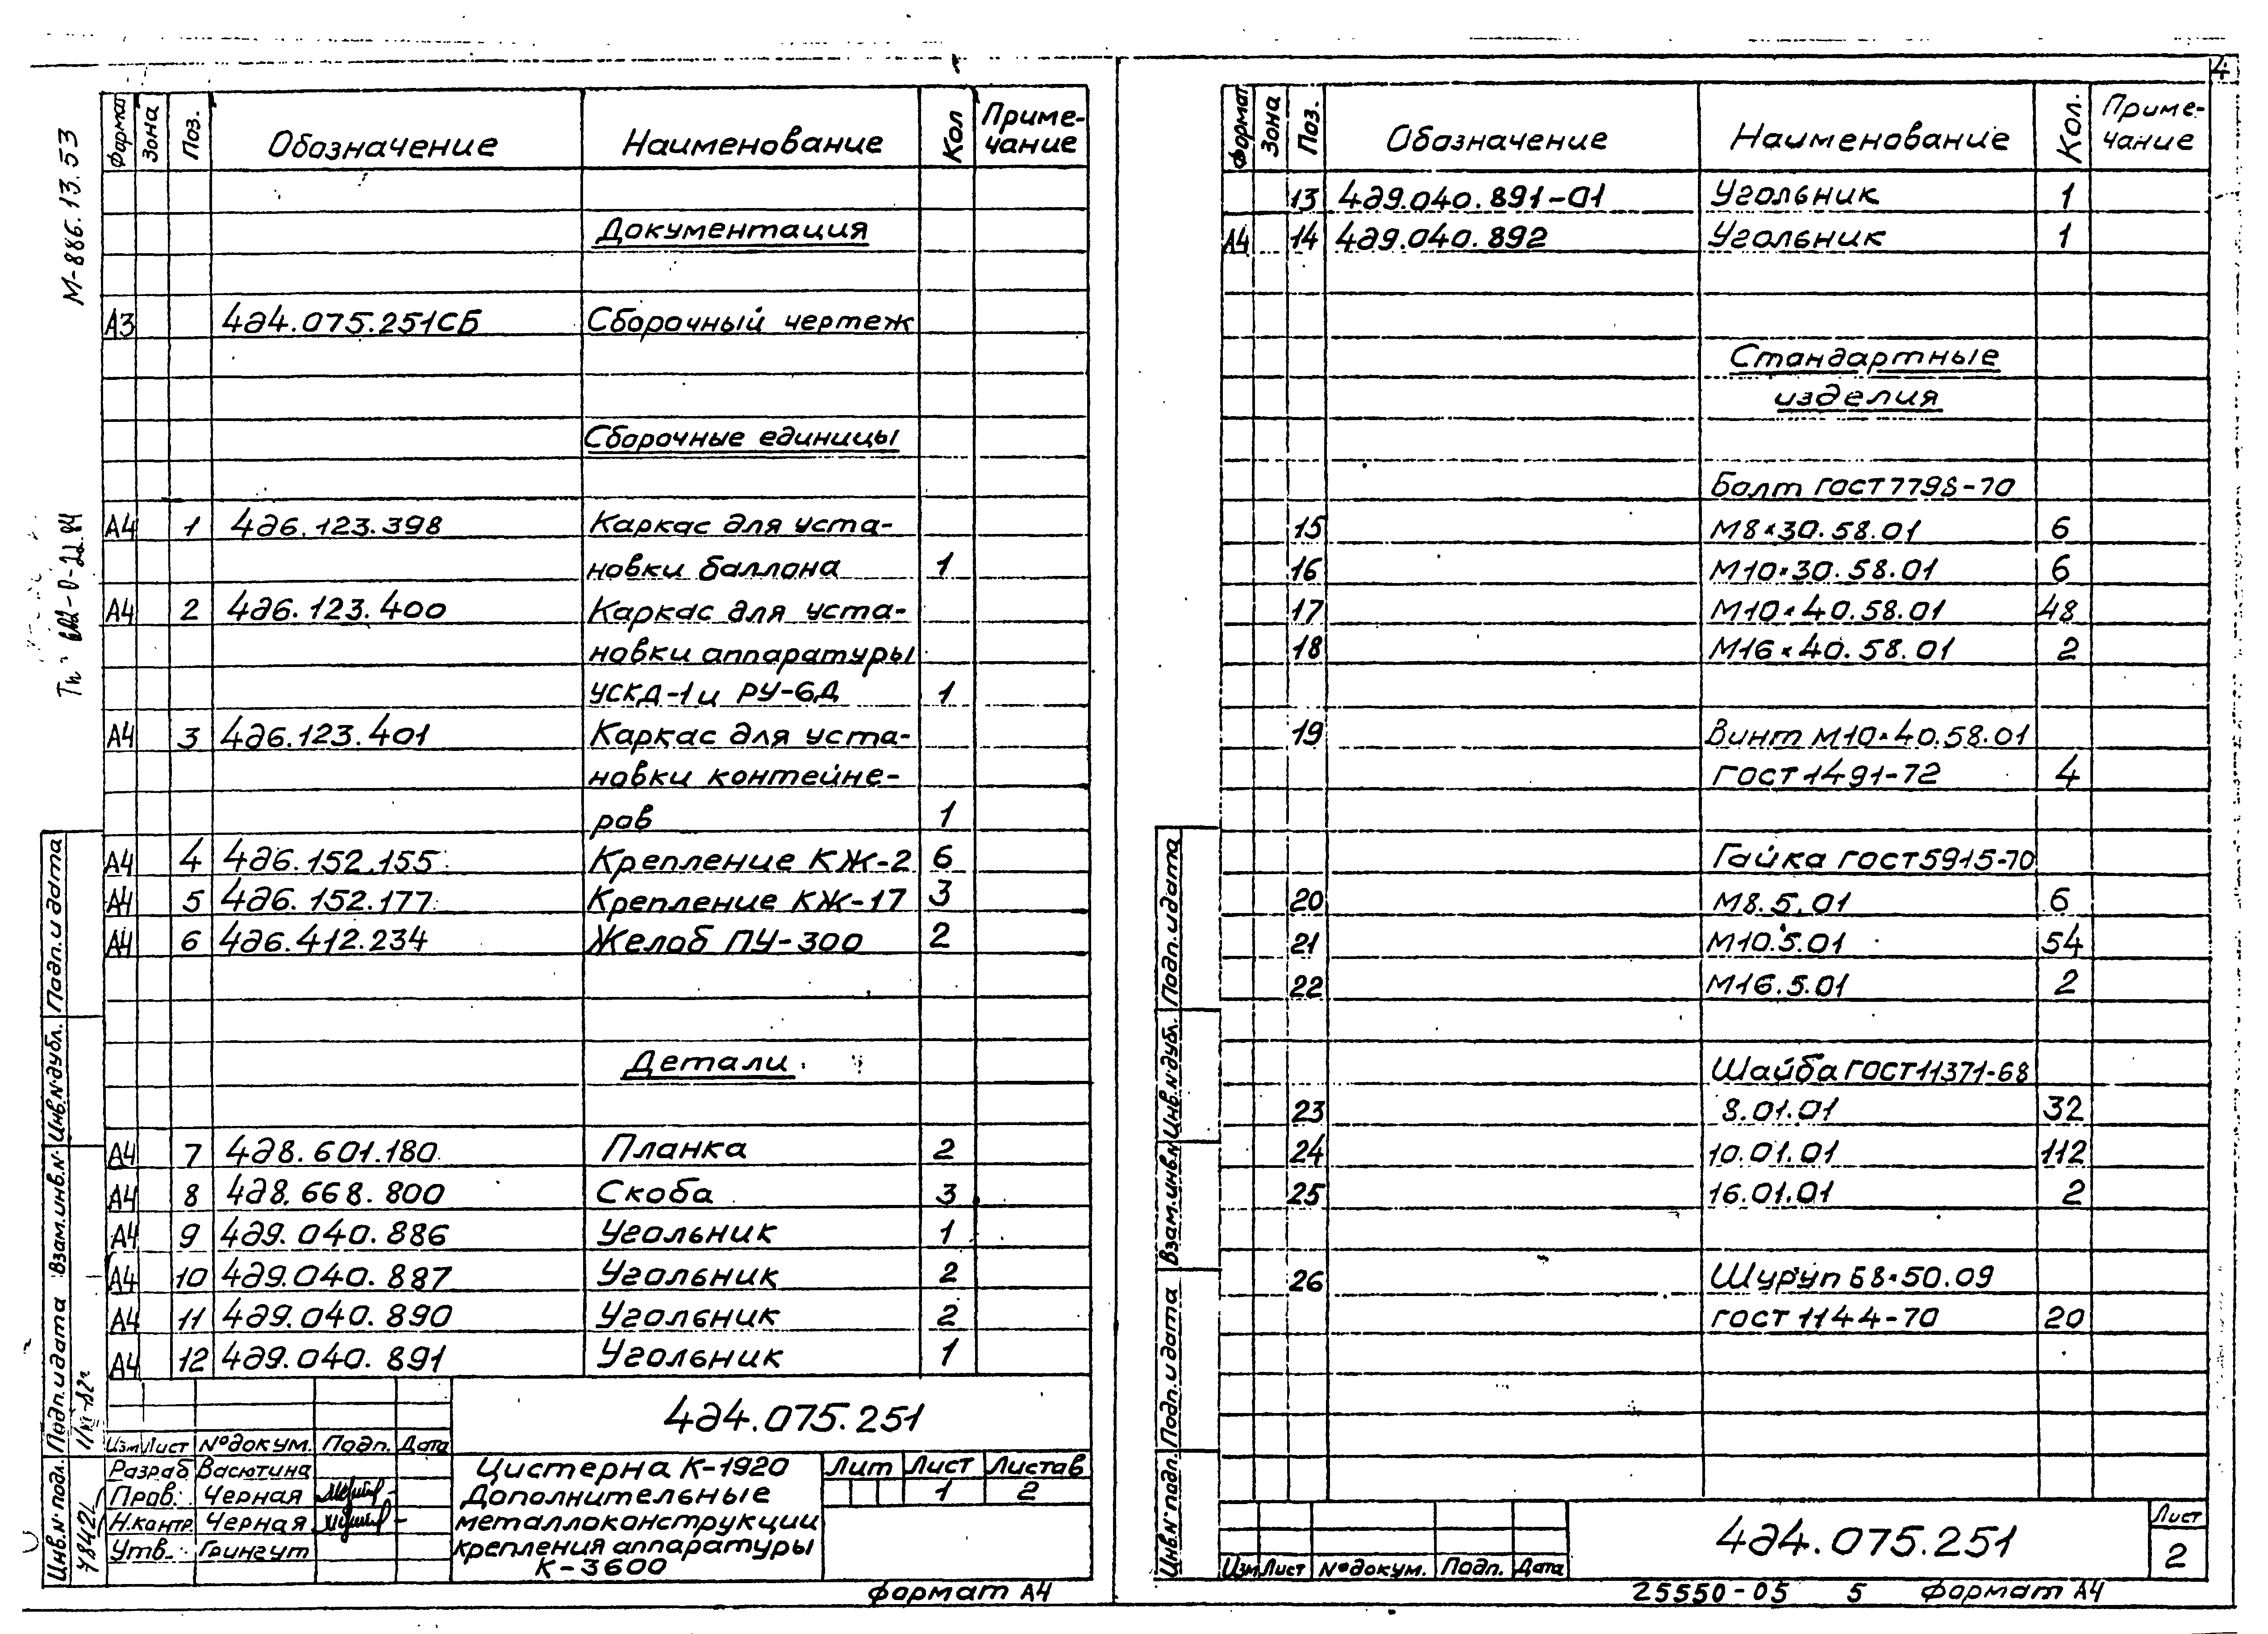 4
М-886.13.53
Формат Зона Поз. Обозначение Наименование Кол Приме-
чание
Документация
А3 4д4.075.251СБ Сборочный чертеж
Сборочные единицы
А4 1 4д6.123.398 Каркас для уста-
новки баллона 1
А4 2 4д6.123.400 Каркас для уста-
новки аппаратуры
УСКД-1 и РУ-6Д 1
А4 3 4д6.123.401 Каркас для уста-
новки контейне-
ров 1
А4 4 4д6.152.155 Крепление КЖ-2 6
А4 5 4д6.152.177 Крепление КЖ-17 3
А4 6 4д6.412.234 Желоб ПУ-300 2
Детали
А4 7 4д8.601.180 Планка 2
А4 8 4д8.668.800 Скоба 3
А4 9 4д9.040.886 Угольник 1
А4 10 4д9.040.887 Угольник 2
А4 11 4д9.040.890 Угольник 2
А4 12 4д9.040.891 Угольник 1
4д4.075.251
Изм Лист № докум. Подп. Дата
Разраб Васютина
Пров. Черная
Н.контр. Черная
Утв. Грингут
Цистерна К-1920
Дополнительные
металлоконструкции
крепления аппаратуры
К-3600
Лит Лист Листов
1 2
Формат А4
Инв.№ подл. Подп. и дата Взам.инв.№ Инв.№ дубл. Подп. и дата
Формат Зона Поз. Обозначение Наименование Кол. Приме-
чание
13 4д9.040.891-01 Угольник 1
А4 14 4д9.040.892 Угольник 1
Стандартные
изделия
Болт ГОСТ 7798-70
15 М8×30.58.01 6
16 М10×30.58.01 6
17 М10×40.58.01 48
18 М16×40.58.01 2
19 Винт М10×40.58.01
ГОСТ 1491-72 4
Гайка ГОСТ 5915-70
20 М8.5.01 6
21 М10.5.01 54
22 М16.5.01 2
Шайба ГОСТ 11371-68
23 8.01.01 32
24 10.01.01 112
25 16.01.01 2
26 Шуруп Б8×50.09
ГОСТ 1144-70 20
4д4.075.251
Лист
2
Изм Лист № докум. Подп. Дата
Инв.№ подл. Подп. и дата Взам.инв.№ Инв.№ дубл. Подп. и дата
25550-05 5 Формат А4